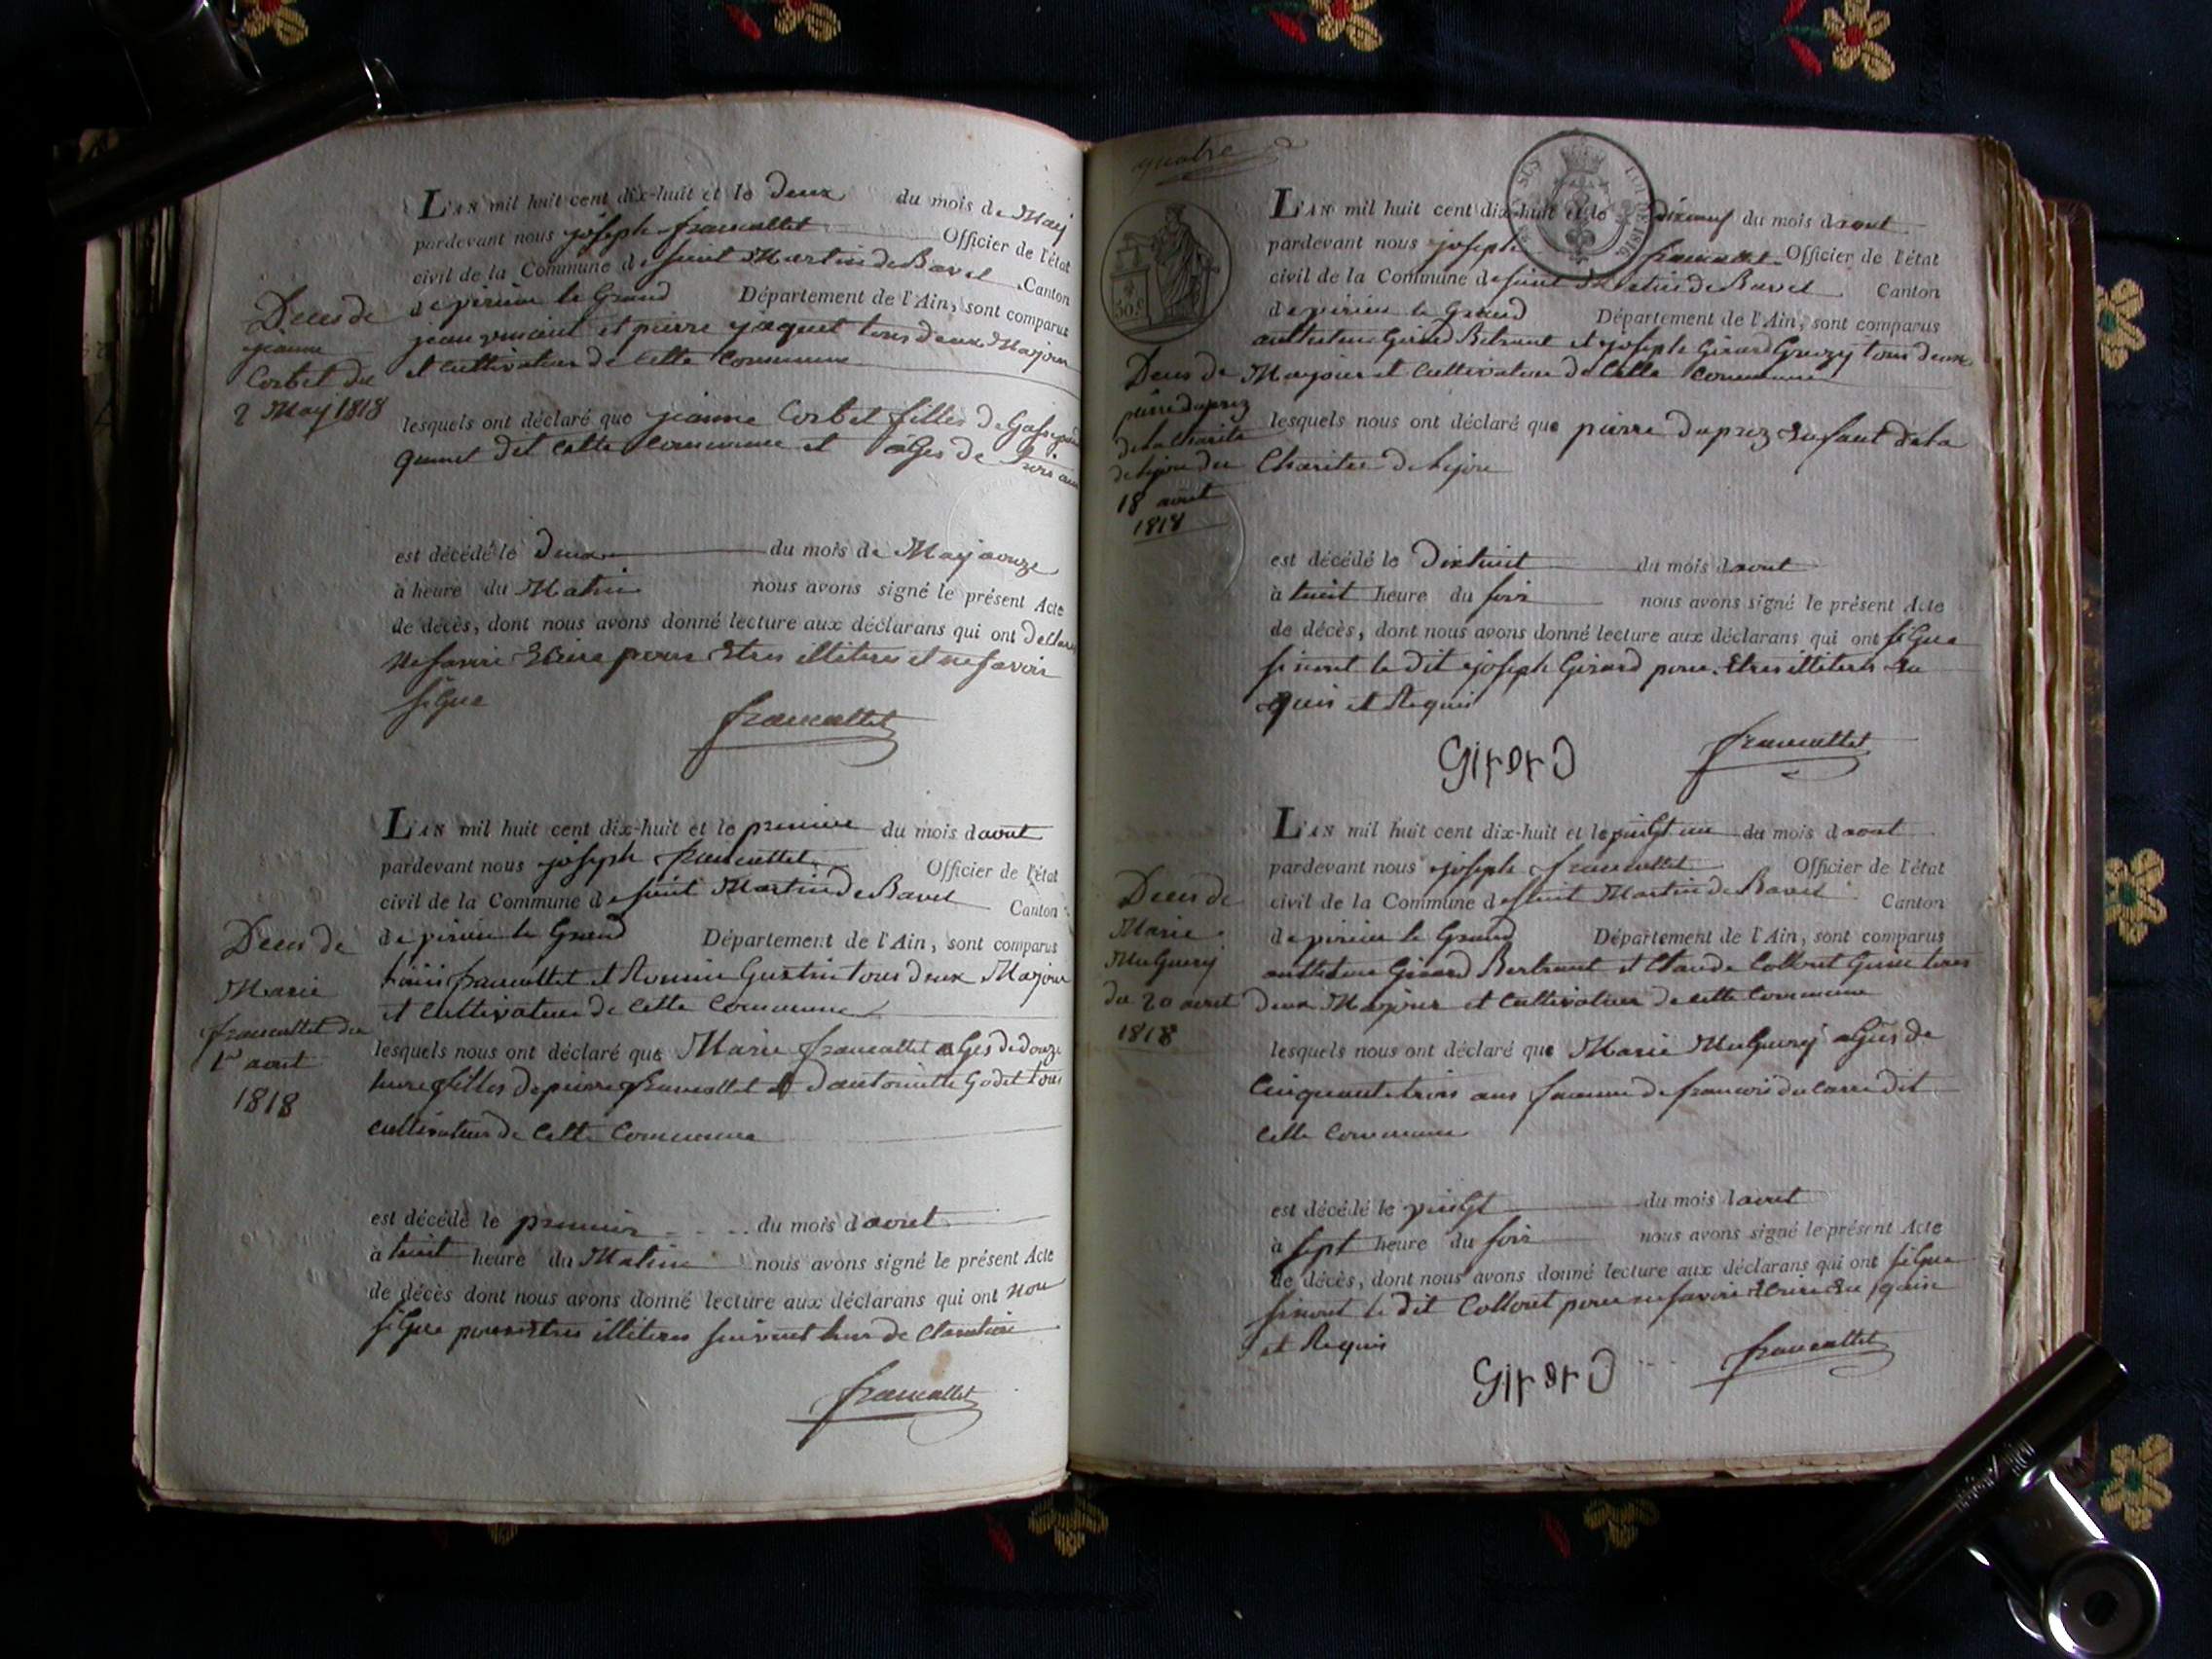 L'AN mil huit cent dix-huit et le deux du mois de May
pardevant nous joseph francallet Officier de l'état
civil de la Commune de saint Martin de Bavel Canton
de virieu le Grand Département de l'Ain, sont comparus
jean vincent et pierre jaquet tous deux Majour
et cultivateur de cette Commune
Deces de
jeanne
Corbet du
2 May 1818
lesquels ont déclaré que jeanne Corbet filles de
dit cette commune et agés de trois ans
est décédé le deux du mois de May a onze
à heure du Matin nous avons signé le présent Acte
de décès, dont nous avons donné lecture aux déclarans qui ont declare
ne savoir Ecrire pour Etres illiteres et ne savoir
signe
francallet
L'AN mil huit cent dix-huit et le premier du mois d aout
pardevant nous joseph francallet Officier de l'état
civil de la Commune de saint Martin de Bavel Canton
de virieu le Grand Département de l'Ain, sont comparus
francallet et Romain Gustin tous deux Majour
et Cultivateur de cette Commune
Deces de
Marie
francallet du
1er aout
1818
lesquels nous ont déclaré que Marie francallet agés de douze
heure filles de pierre francallet et d antoinette Godet tous
cultivateur de cette Commune
est décédé le premier du mois d aout
à huit heure du Matin nous avons signé le présent Acte
de décès dont nous avons donné lecture aux déclarans qui ont non
signe pour Etres illiteres suivant leur declaration
francallet
quatre
50 c
LOUIS 1816
L'AN mil huit cent dix-huit et le dixneuf du mois d aout
pardevant nous joseph francallet Officier de l'état
civil de la Commune de saint Martin de Bavel Canton
de virieu le Grand Département de l'Ain, sont comparus
anthelme Girard Betrant et joseph Girard Gruzy tous deux
Majour et Cultivateur de Cette Commune
Deces de
pierre duprez
de la charité
de lyon du
18 aout
1818
lesquels nous ont déclaré que pierre duprez Enfant de la
Charitee de lyon
est décédé le Dixhuit du mois d aout
à huit heure du soir nous avons signé le présent Acte
de décès, dont nous avons donné lecture aux déclarans qui ont signe
sinont le dit joseph Girard pour Etres illiteres En
quis et Requis
Girard francallet
L'AN mil huit cent dix-huit et le vingt un du mois d aout
pardevant nous joseph francallet Officier de l'état
civil de la Commune de saint Martin de Bavel Canton
de virieu le Grand Département de l'Ain, sont comparus
anthelme Girard Bertrant et Claude Collont tous
deux Majour et Cultivateur de cette Commune
Deces de
Marie
MuGuery
du 20 aout
1818
lesquels nous ont déclaré que Marie MuGuery agés de
Cinquante trois ans femme de francois ducarre dit
cette Commune
est décédé le vingt du mois d aout
à sept heure du soir nous avons signé le présent Acte
de décès, dont nous avons donné lecture aux déclarans qui ont signe
sinont le dit Collont pour ne savoir Ecrire En quise
et Requis
Girard francallet